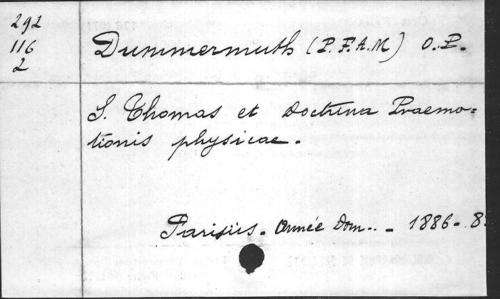 292
116
2
Dummermuth (P. F. A. M.) O. P.
S. Thomas et doctrina Praemo-
tionis physicae.
Parisiis. Année Dom.. - 1886- 8